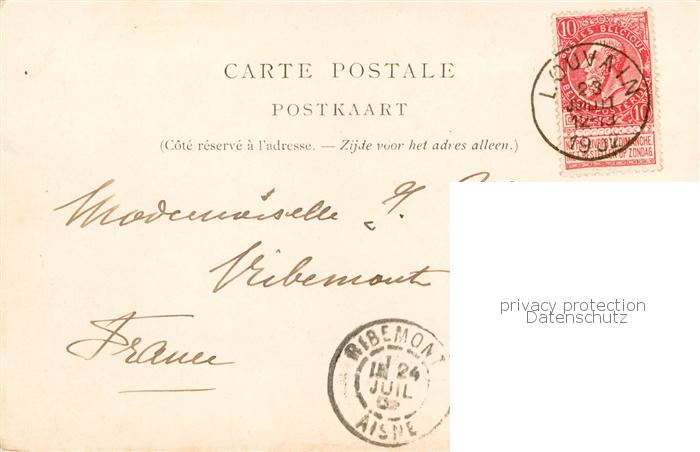 10 10
POSTES BELGIQUE
LOUVAIN
23
JUIL
12-13
19
CARTE POSTALE
POSTKAART
(Côté réservé à l'adresse. — Zijde voor het adres alleen.)
Mademoiselle
Ribemont
France
privacy protection
Datenschutz
RIBEMONT
24
JUIL
AISNE